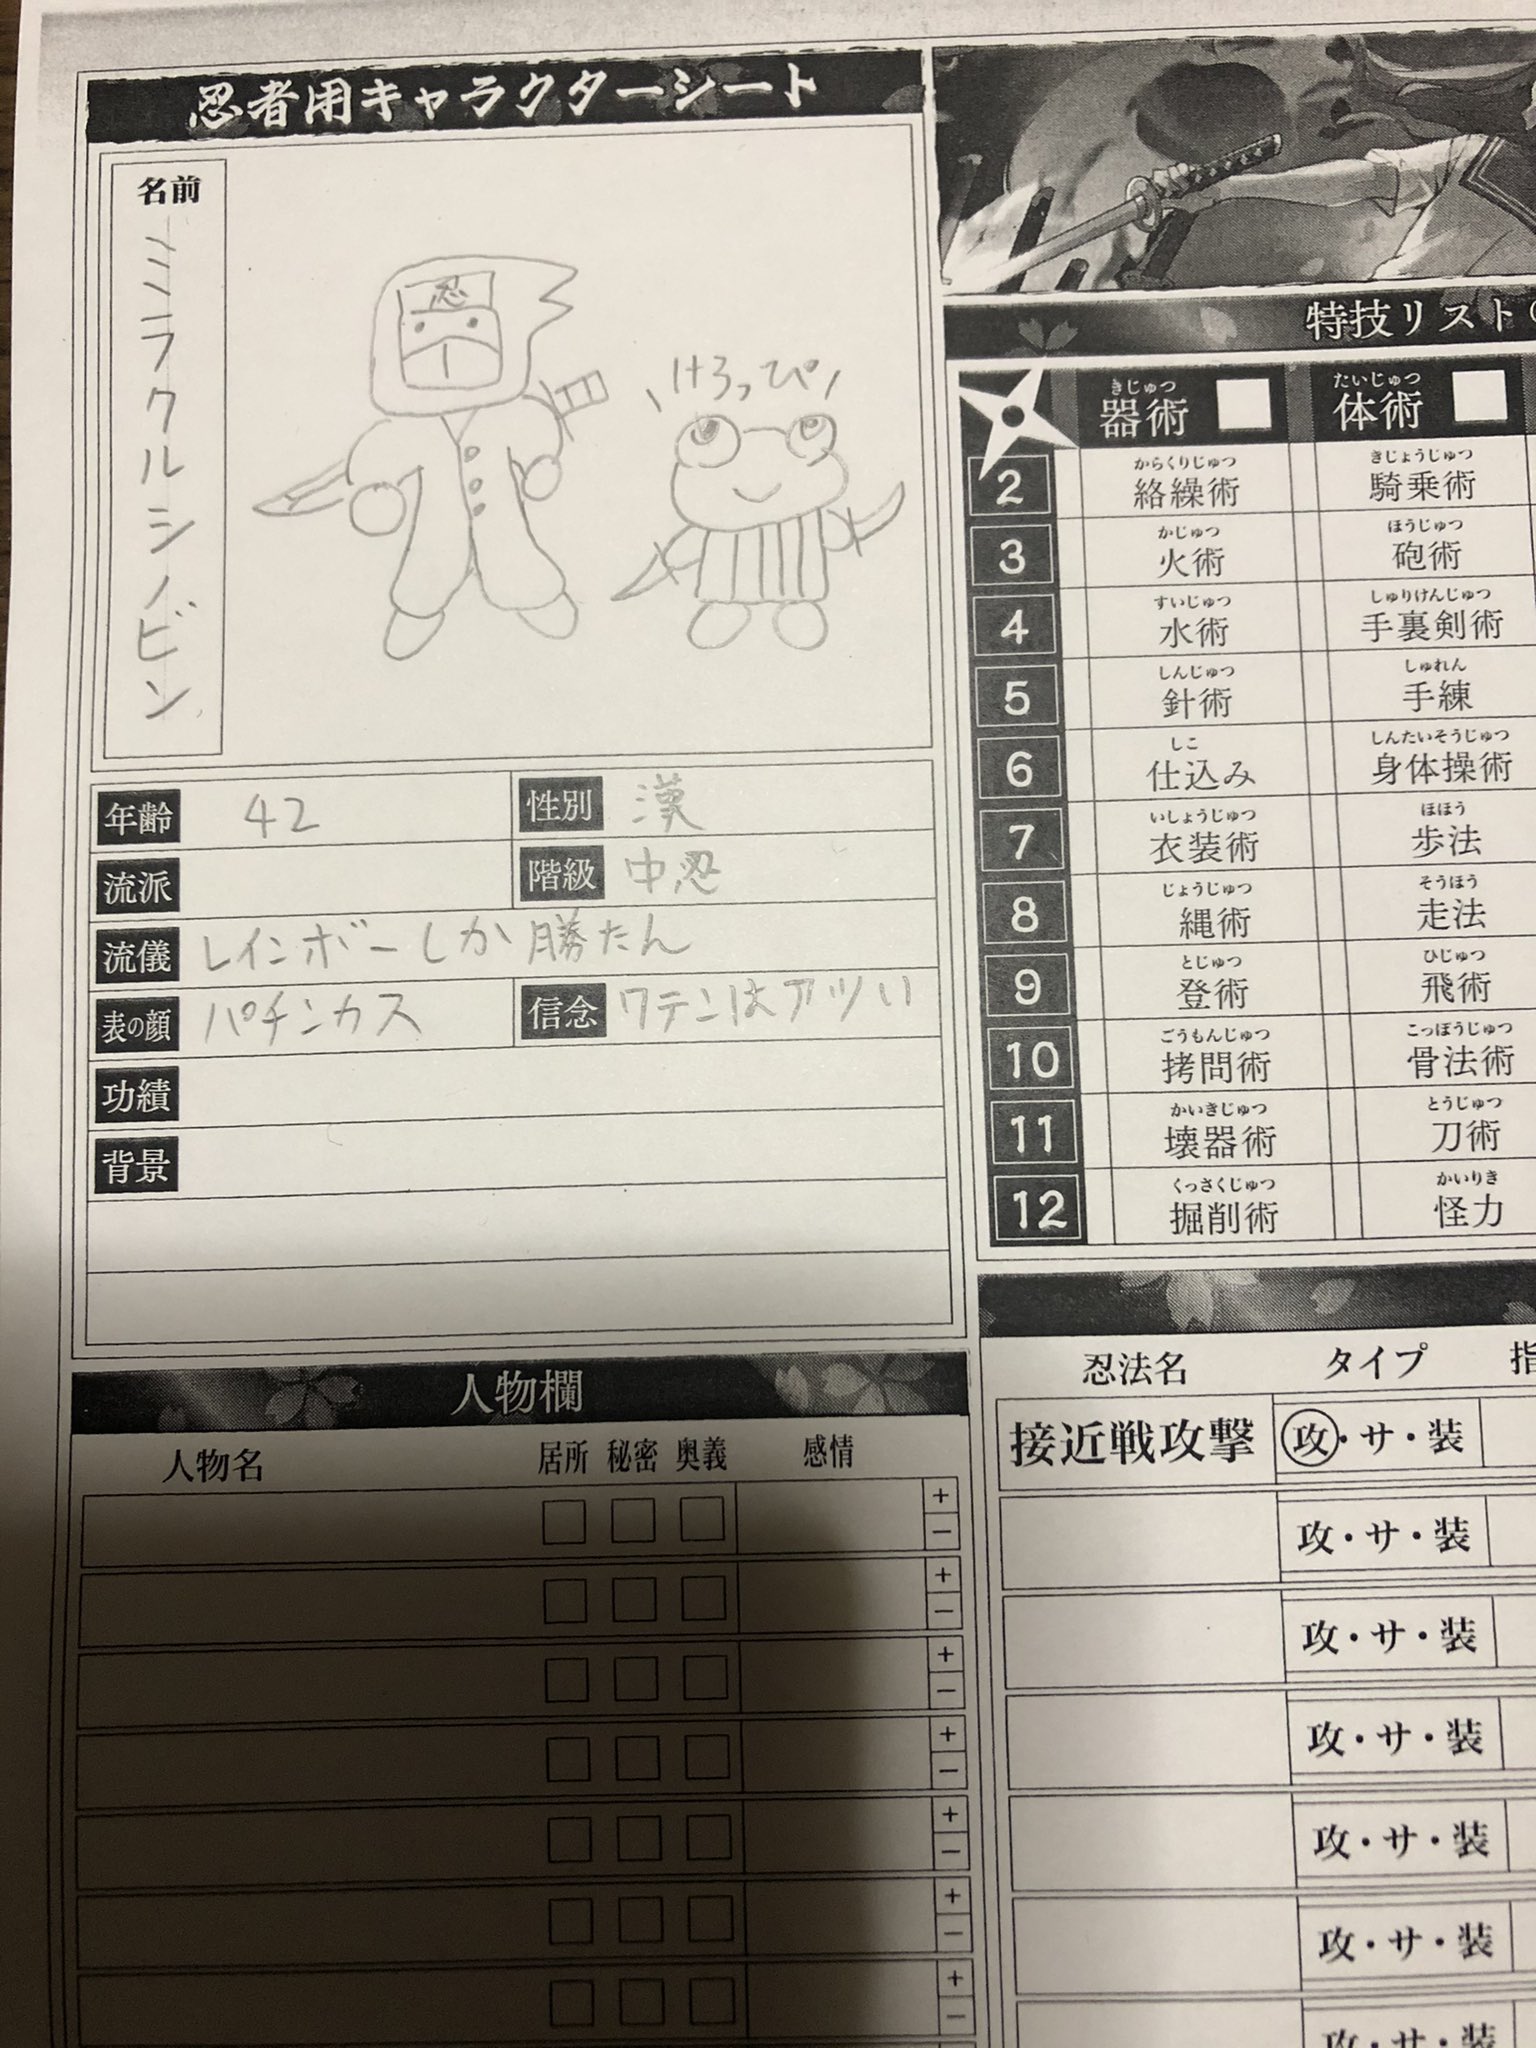 忍者用キャラクターシート
名前
ミラクルシノビン
忍
けろっぴ
年齢 42 性別 漢
流派 階級 中忍
流儀 レインボーしか勝たん
表の顔 パチンカス 信念 ワテンはアツい
功績
背景
人物欄
人物名 居所 秘密 奥義 感情
+
−
+
−
+
−
+
−
+
−
+
−
+
−
特技リスト
きじゅつ たいじゅつ
器術 体術
からくりじゅつ きじょうじゅつ
2 絡繰術 騎乗術
かじゅつ ほうじゅつ
3 火術 砲術
すいじゅつ しゅりけんじゅつ
4 水術 手裏剣術
しんじゅつ しゅれん
5 針術 手練
しこ しんたいそうじゅつ
6 仕込み 身体操術
いしょうじゅつ ほほう
7 衣装術 歩法
じょうじゅつ そうほう
8 縄術 走法
とじゅつ ひじゅつ
9 登術 飛術
ごうもんじゅつ こっぽうじゅつ
10 拷問術 骨法術
かいきじゅつ とうじゅつ
11 壊器術 刀術
くっさくじゅつ かいりき
12 掘削術 怪力
忍法名 タイプ 指
接近戦攻撃 攻・サ・装
攻・サ・装
攻・サ・装
攻・サ・装
攻・サ・装
攻・サ・装
攻・サ・装